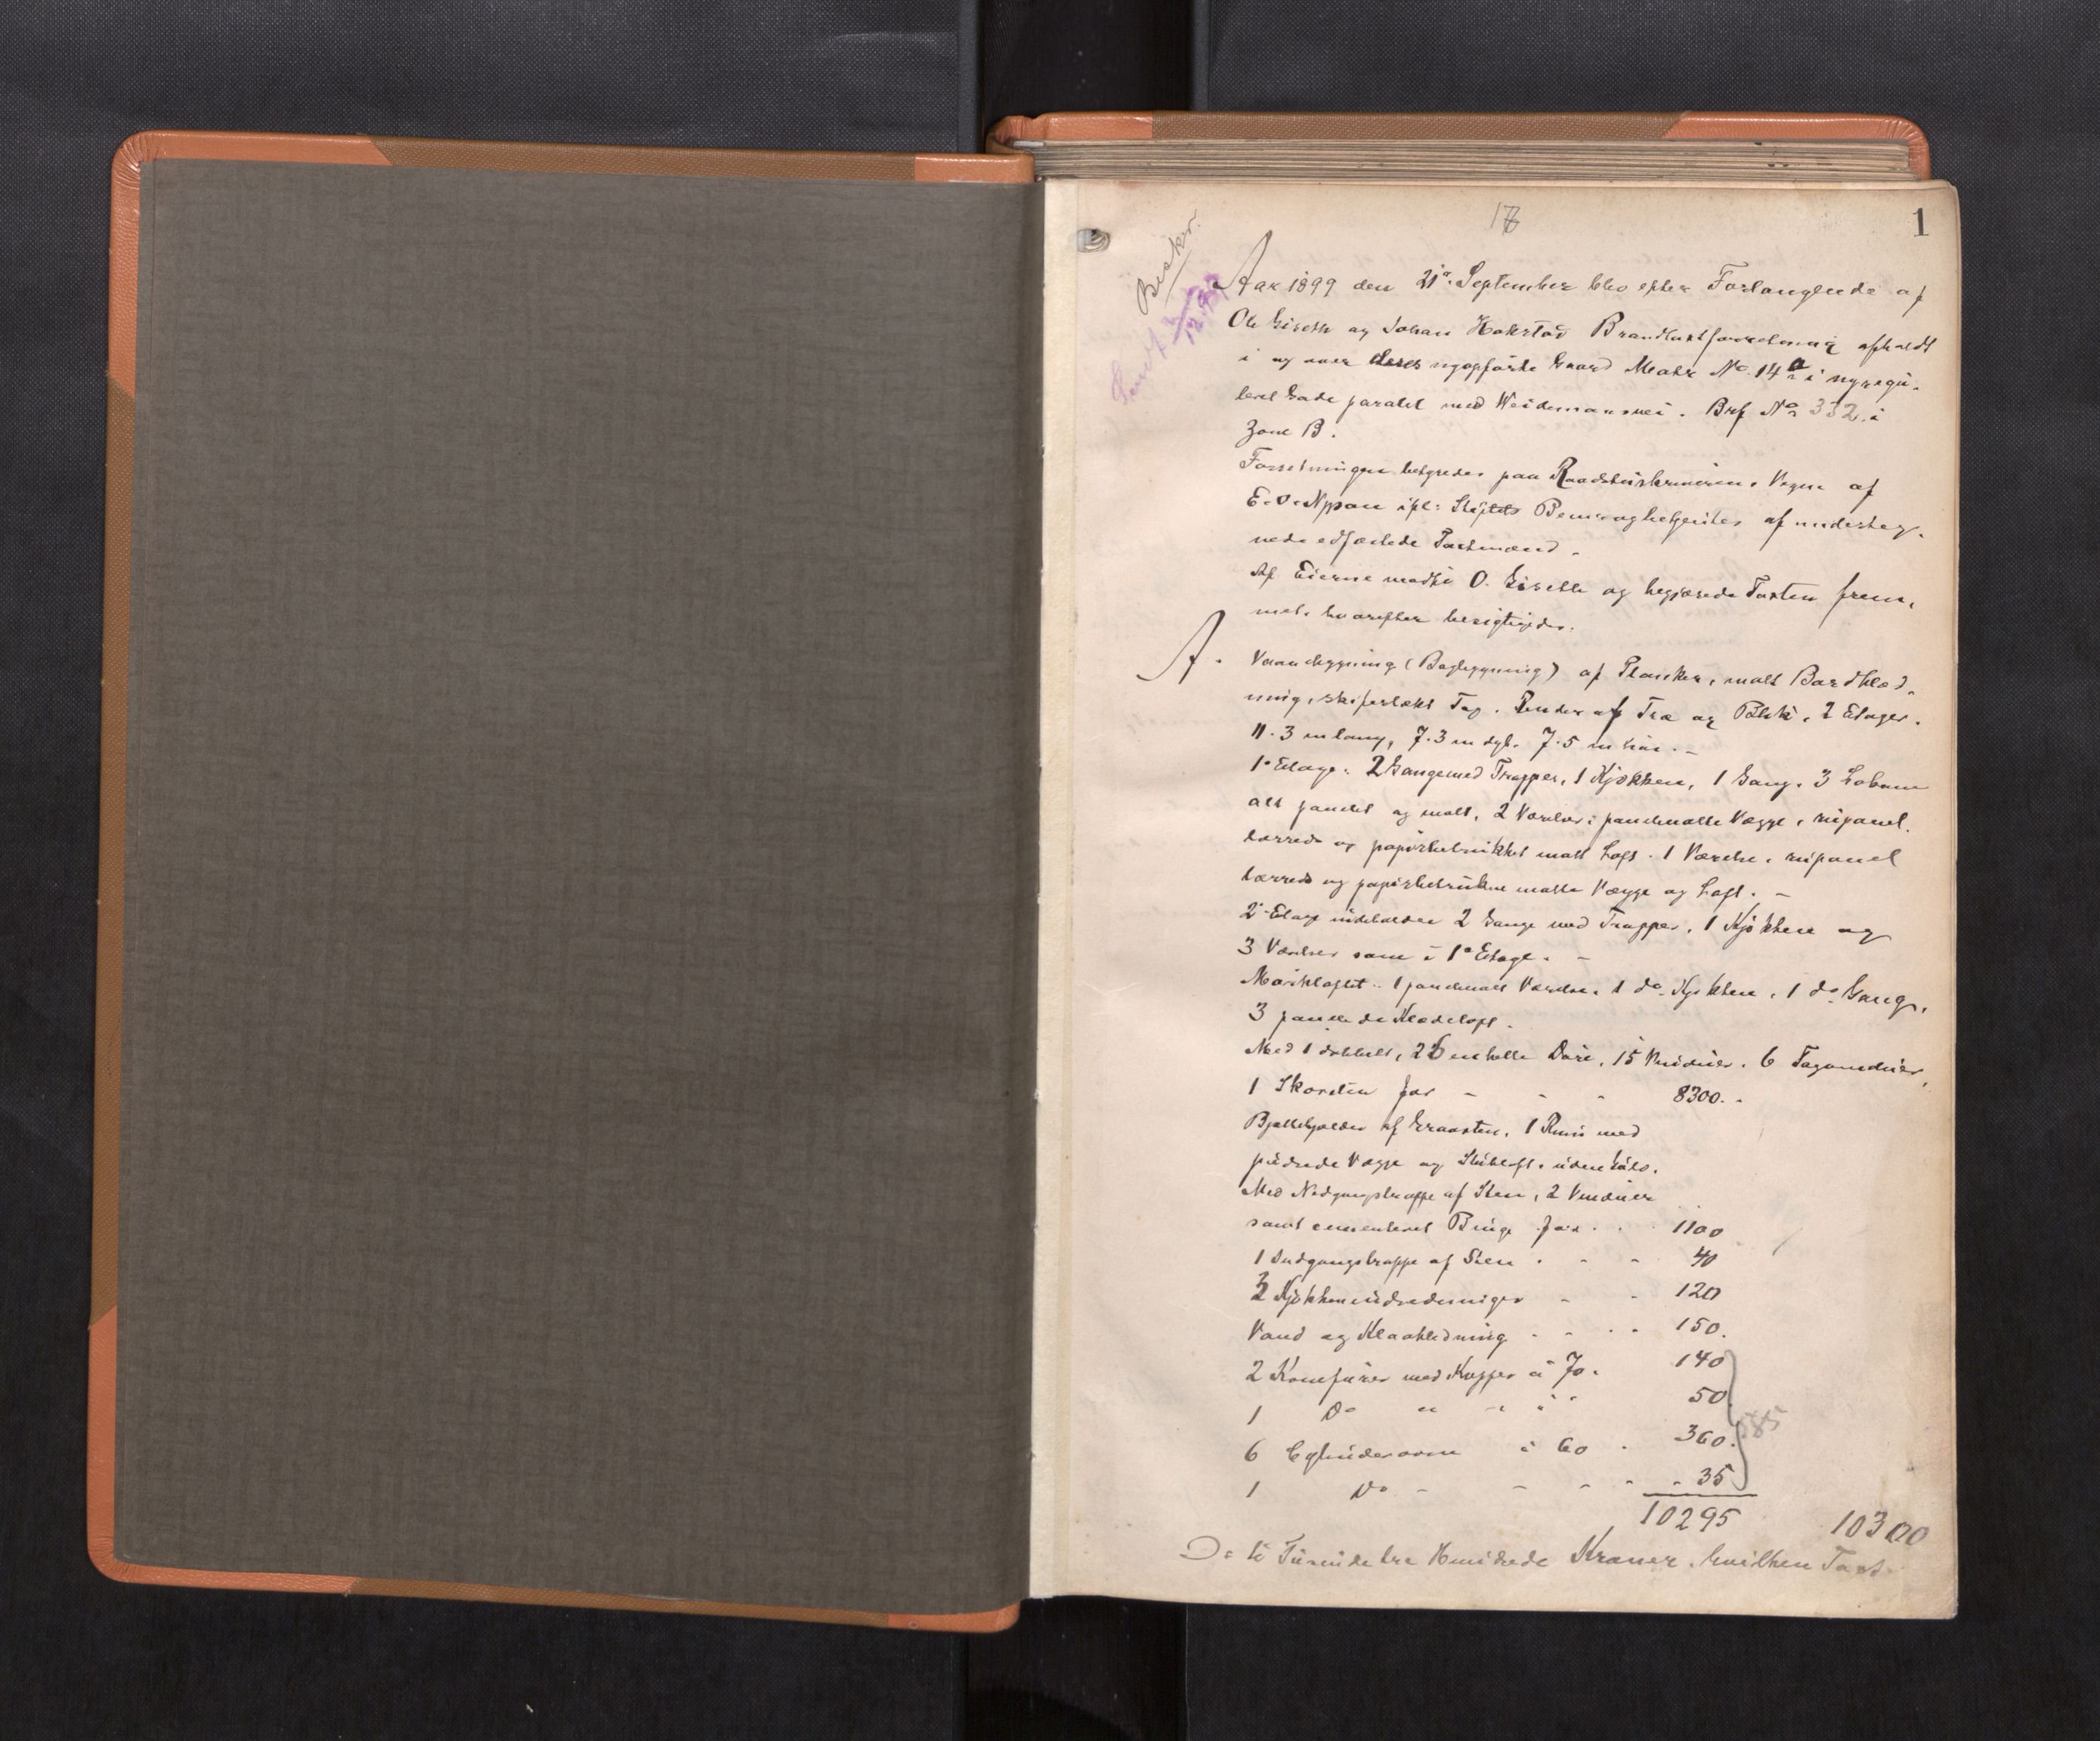 17
1
Beskr.
Sendt
Aar 1899 den 21de September blev efter Forlangende af
Ole Giseth og Johan Hokstad Brandtaxtforretning afholdt
i og over deres nyopførte Gaard Matr No. 14a i nyregu-
leret Gade paralel med Weidemansvei. Brf No 332 i
Zone B.
Forretningen betyredes paa Raadstuskriverens Vegne af
E. O. Nypan ifl: Bemyndigelse af underteg-
nede edfæstede Taxtmænd.
Af Eierne mødte O. Giseth og begjærede Taxten frem-
met. hvorefter besigtigedes.
A. Vaanebygning (Bagbygning) af Planker, malt Bordklæd-
ning, skifertækt Tag. Render af Træ og Blik, 2 Etager.
11.3 m lang, 7.3 m dyb. 7.5 m høi. -
1e Etage: 2 Gange med Trapper, 1 Kjøkken, 1 Gang, 3
alt panelet og malt, 2 Værelser: panelmalte Vægge, rupanel,
lærreds og papirbetrukket malt Loft. 1 Værelse, rupanel
lærreds og papirbetrukne malte Vægge og Loft. -
2e Etage indeholder 2 Gange med Trapper, 1 Kjøkken og
3 Værelser som i 1e Etage. -
Mørkloftet: 1 panelmalt Værelse, 1 do Kjøkken, 1 do Gang,
3 panelede Klædeloft.
Med 1 dobbelt, 26 enkelte Døre, 15 Vinduer, 6 Tagvinduer,
1 Skorsten for - - - 8300. -
Bjelkekjælder af Graasten, 1 Rum med
pudsede Vægge og Stukloft, uden Gulv.
Med Nedgangstrappe af Sten, 2 Vinduer
samt cementeret Binge for . . 1100
1 Indgangstrappe af Sten . - - 40
3 Kjøkkenindredninger - - 120
Vand og Kloakledning - - . . 150.
2 Komfurer med Kopper à 70. 140
1 Do " " " " 50
6 Cylinderovne à 60 . 360.
1 Do - - - - - 35
585
10295 10300
De ti Tusinde tre Hundrede Kroner, hvilken Taxt